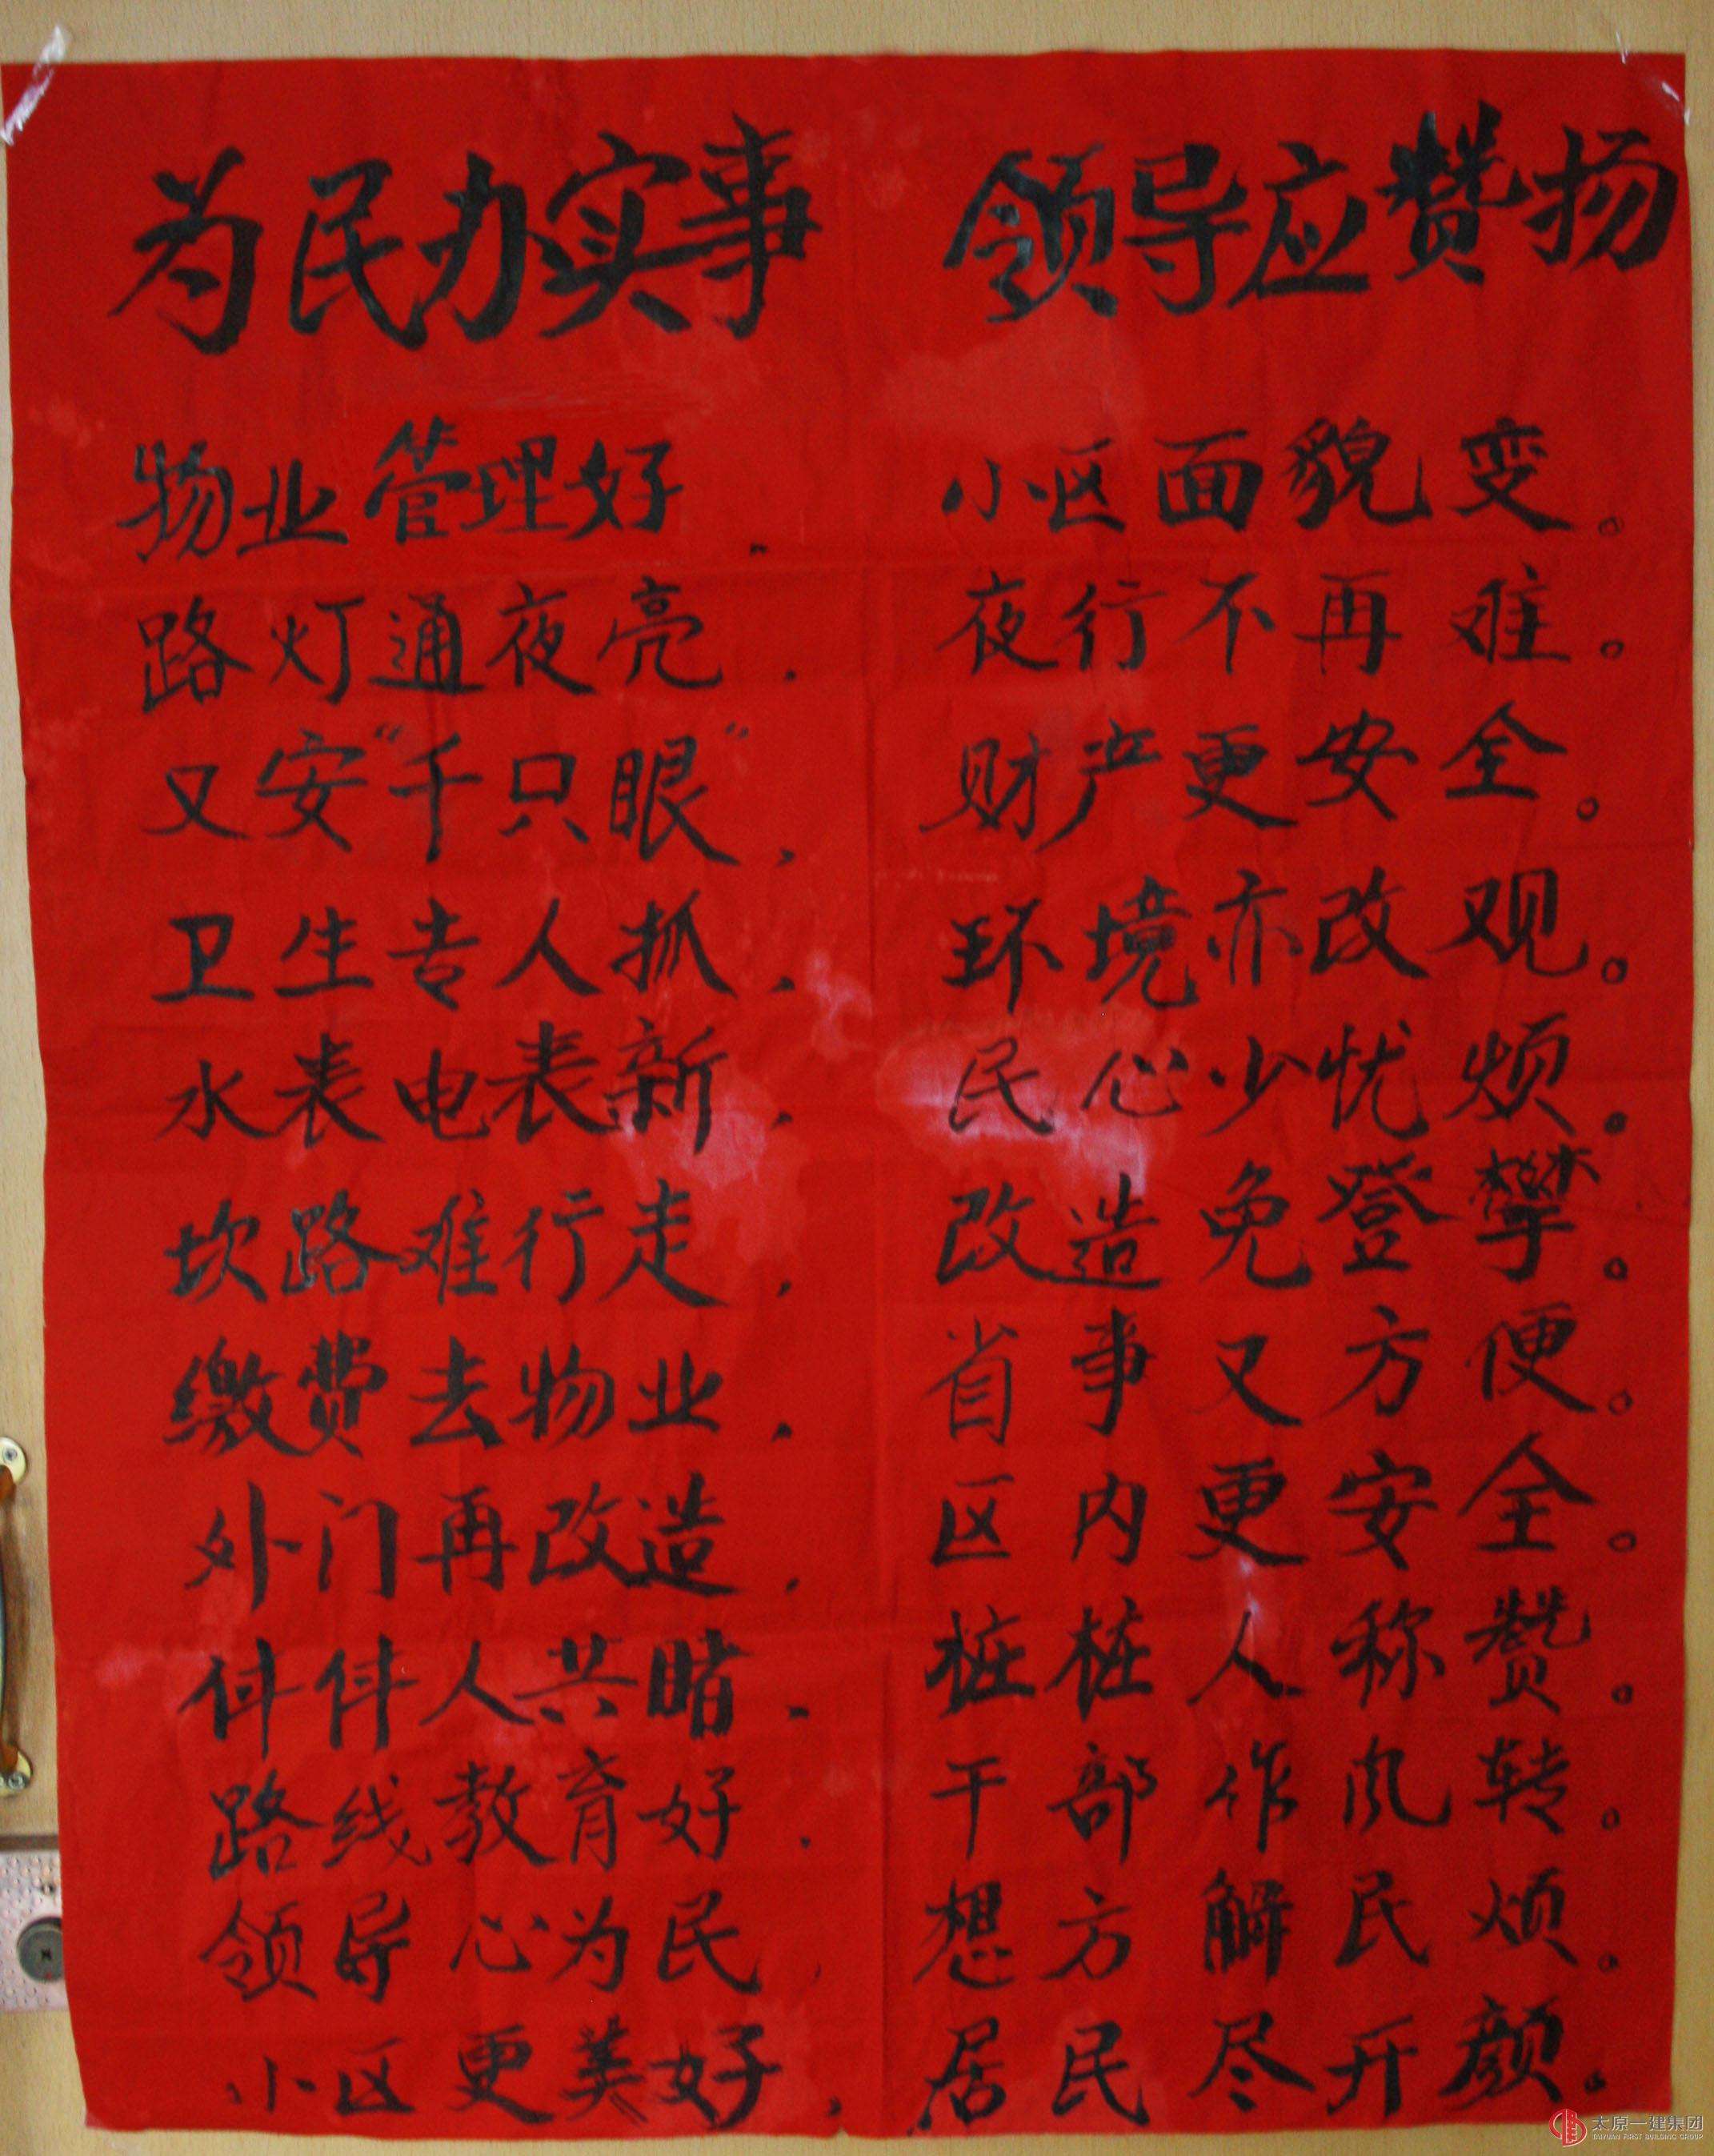 为民办实事 领导应赞扬
物业管理好. 小区面貌变。
路灯通夜亮, 夜行不再难。
又安“千只眼”, 财产更安全。
卫生专人抓, 环境亦改观。
水表电表新, 民心少忧烦。
坎路难行走, 改造免登攀。
缴费去物业, 省事又方便。
外门再改造, 区内更安全。
件件人共睹, 桩桩人称赞。
路线教育好, 干部作风转。
领导心为民, 想方解民烦。
小区更美好, 居民尽开颜。
太原一建集团
TAIYUAN FIRST BUILDING GROUP